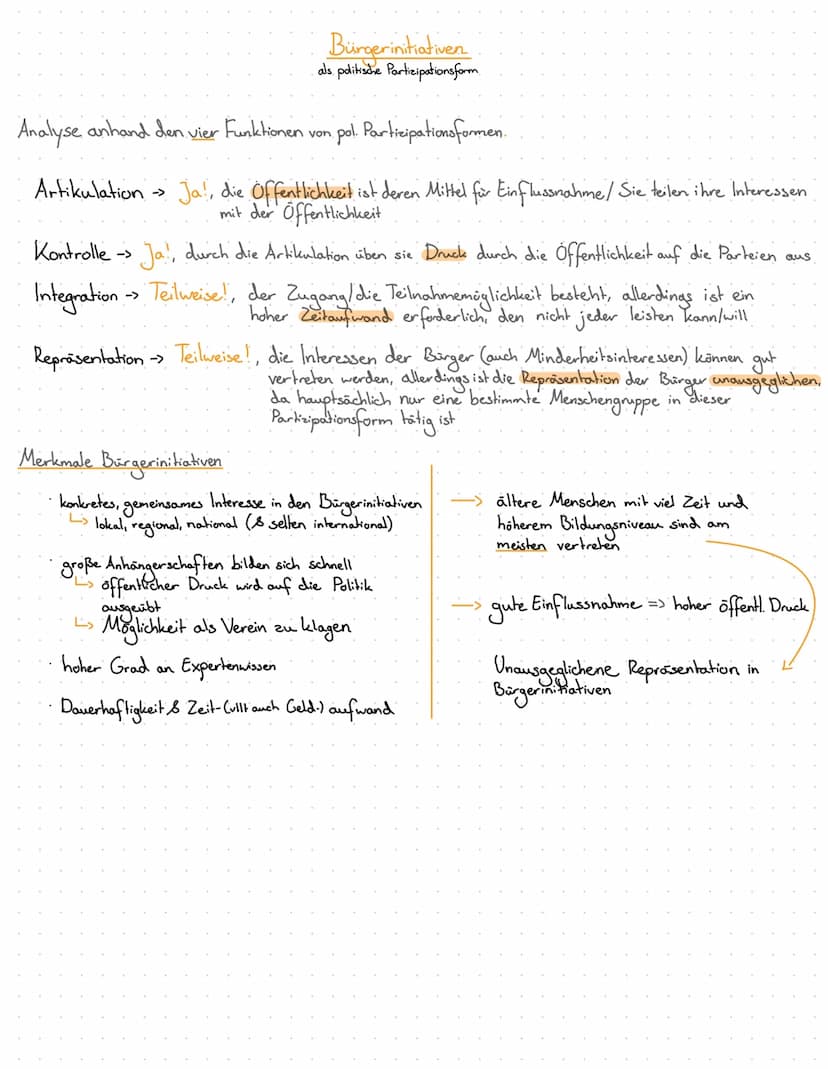 Bürgerinitiativen
als politische Partizipationsform
Analyse anhand den vier Funktionen von pol. Partizipationsformen.
Artikulation -> Ja!, die Öffentlichkeit ist deren Mittel für Einflussnahme/ Sie teilen ihre Interessen
mit der Öffentlichkeit
Kontrolle -> Ja!, durch die Artikulation üben sie Druck durch die Öffentlichkeit auf die Parteien aus
Integration -> Teilweise!, der Zugang/die Teilnahmemöglichkeit besteht, allerdings ist ein
hoher Zeitaufwand erforderlich, den nicht jeder leisten kann/will
Repräsentation -> Teilweise!, die Interessen der Bürger (auch Minderheitsinteressen) können gut
vertreten werden, allerdings ist die Repräsentation der Bürger unausgeglichen,
da hauptsächlich nur eine bestimmte Menschengruppe in dieser
Partizipationsform tätig ist
Merkmale Bürgerinitiativen
· konkretes, gemeinsames Interesse in den Bürgerinitiativen
↳ lokal, regional, national (& selten international)
· große Anhängerschaften bilden sich schnell
↳ öffentlicher Druck wird auf die Politik
ausgeübt
↳ Möglichkeit als Verein zu klagen
· hoher Grad an Expertenwissen
· Dauerhaftigkeit & Zeit-(vllt auch Geld-) aufwand
-> ältere Menschen mit viel Zeit und
höherem Bildungsniveau sind am
meisten vertreten
-> gute Einflussnahme => hoher öffentl. Druck
Unausgeglichene Repräsentation in
Bürgerinitiativen